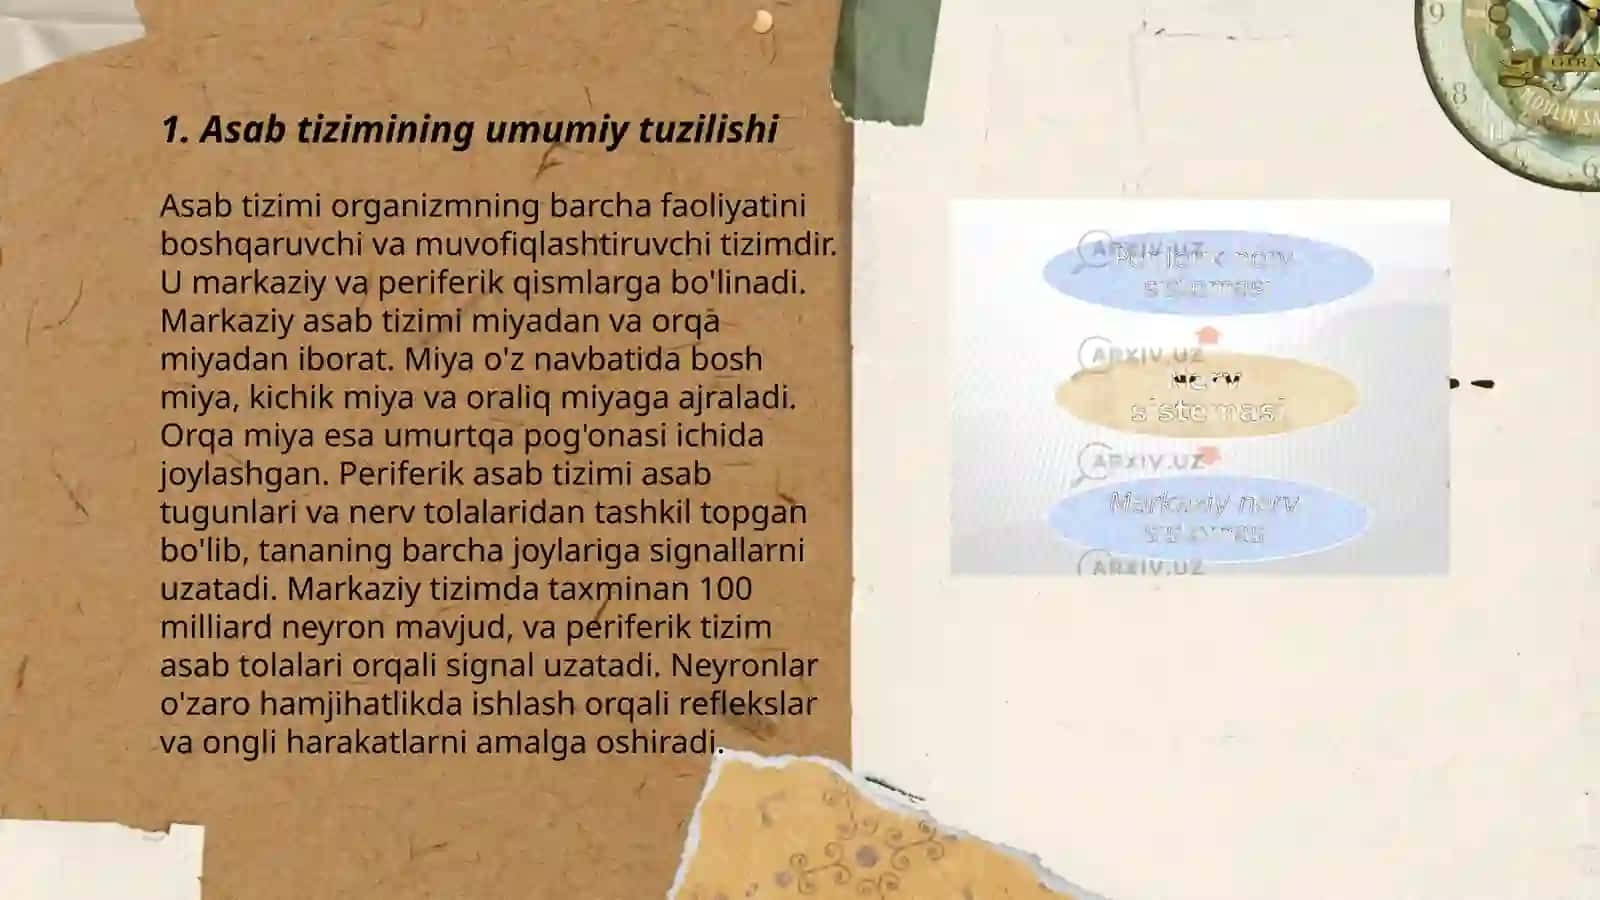 1. Asab tizimining umumiy tuzilishi
Asab tizimi organizmning barcha faoliyatini
boshqaruvchi va muvofiqlashtiruvchi tizimdir.
U markaziy va periferik qismlarga bo'linadi.
Markaziy asab tizimi miyadan va orqa
miyadan iborat. Miya o'z navbatida bosh
miya, kichik miya va oraliq miyaga ajraladi.
Orqa miya esa umurtqa pog'onasi ichida
joylashgan. Periferik asab tizimi asab
tugunlari va nerv tolalaridan tashkil topgan
bo'lib, tananing barcha joylariga signallarni
uzatadi. Markaziy tizimda taxminan 100
milliard neyron mavjud, va periferik tizim
asab tolalari orqali signal uzatadi. Neyronlar
o'zaro hamjihatlikda ishlash orqali reflekslar
va ongli harakatlarni amalga oshiradi.
ARXIV.UZ
nerv
ARXIV.UZ
Nerv
sistemasi
ARXIV.UZ
Markaziy nerv
ARXIV.UZ
9
8
6
MOULIN